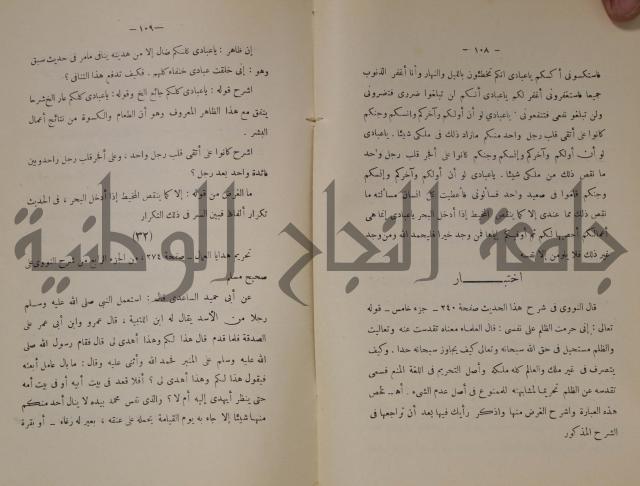 — ١٠٨ —
فاستكسونى أكسكم ياعبادى انكم تخطئون بالليل والنهار وأنا أغفر الذنوب
جميعا فاستغفرونى أغفر لكم ياعبادى أنكم لن تبلغوا ضررى فتضرونى
ولن تبلغو نفعى فتنفعونى: ياعبادى لو أن أولكم وآخركم وانسكم وجنكم
كانوا على أتقى قلب رجل واحد منكم مازاد ذلك فى ملكى شيئا. ياعبادى
لو أن أولكم وآخركم وإنسكم وجنكم كانوا على أفجر قلب رجل واحد
ما نقص ذلك من ملكى شيئا. ياعبادى لو أن أولكم وآخركم وإنسكم
وجنكم قاموا فى صعيد واحد فسألونى فأعطيت كل انسان مسألته ما
نقص ذلك مما عندى إلا كما ينقص المخيط إذا أدخل البحر ياعبادى إنما هى
أعمالكم أحصيها لكم ثم أوفيكم إياها فمن وجد خيرا فليحمد الله ومن وجد
غير ذلك فلا يلومن إلا نفسه
اختبـــــار
قال النووى فى شرح هذا الحديث صفحة ٢٤٠ ـ جزء خامس ـ قوله
تعالى: إنى حرمت الظلم على نفسى: قال العلماء معناه تقدست عنه وتعاليت
والظلم مستحيل فى حق الله سبحانه وتعالى كيف يجاوز سبحانه حدا. وكيف
يتصرف فى غير ملك والعالم كله ملكه وأصل التحريم فى اللغة المنع فسمى
تقدسه عن الظلم تحريما لمشابهته للممنوع فى أصل عدم الشىء. أهـ ـ لخص
هذه العبارة واشرح الغرض منها واذكر رأيك فيها بعد أن تراجعها فى
الشرح المذكور
— ١٠٩ —
إن ظاهر: ياعبادى كلكم ضال إلا من هديته ينافى مامر فى حديث سبق
وهو: إنى خلقت عبادى حنفاء كلهم. فكيف تدفع هذا التنافى؟
اشرح قوله: ياعبادى كلكم جائع الخ وقوله: ياعبادى كلكم عار الخ شرحا
يتفق مع هذا الظاهر المعروف وهو أن الطعام والكسوة من نتائج أعمال
البشر.
اشرح كانوا على أتقى قلب رجل واحد، وعلى أفجر قلب رجل واحد وبين
فائدة واحد بعد رجل؟
ما الغرض من قوله: إلا كما ينقص المخيط إذا أدخل البحر، فى الحديث
تكرار ألفاظ فبين السر فى ذلك التكرار
(٣٢)
تحريم هدايا العمال ـ صفحة ٢٧٤ من الجزء الرابع من شرح النووى على
صحيح مسلم
عن أبى حميد الساعدى قال: استعمل النبى صلى الله عليه وسلم
رجلا من الأسد يقال له ابن اللتبية، قال عمرو وابن أبى عمر على
الصدقة فلما قدم قال هذا لكم وهذا أهدى لى قال فقام رسول الله صلى
الله عليه وسلم على المنبر فحمد الله وأثنى عليه وقال: ما بال عامل أبعثه
فيقول هذا لكم وهذا أهدى لى؟ أفلا قعد فى بيت أبيه أو فى بيت أمه
حتى ينظر أيهدى إليه أم لا؟ والذى نفس محمد بيده لا ينال أحد منكم
منها شيئا إلا جاء به يوم القيامة يحمله على عنقه، بعير له رغاء ـ أو بقرة
جامعة النجاح الوطنية